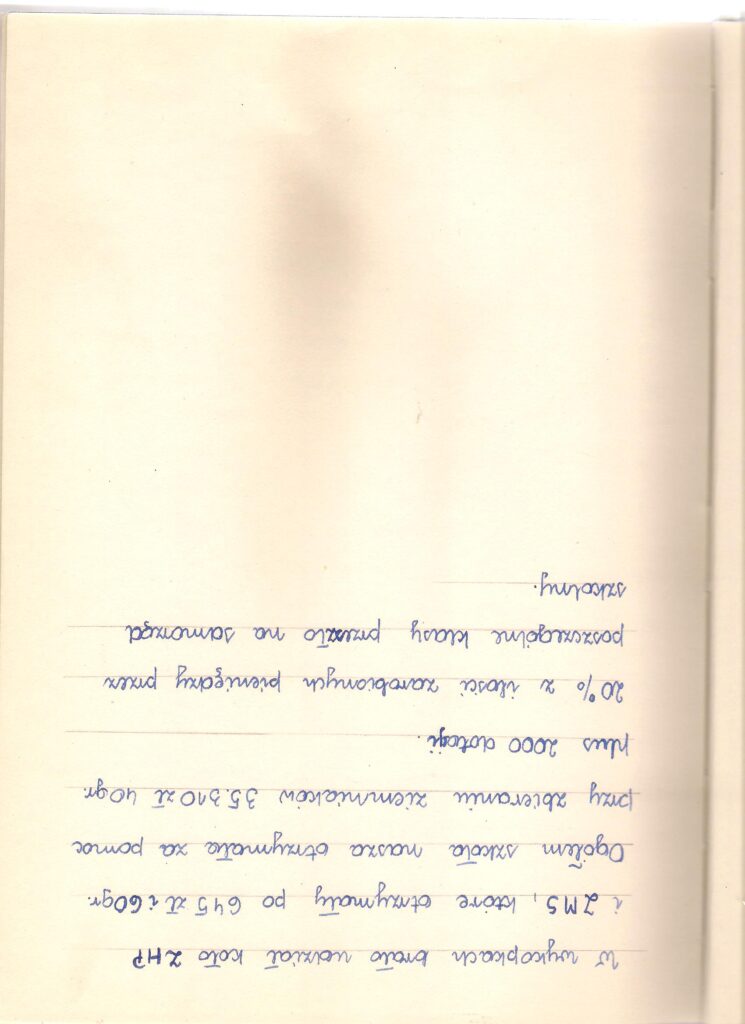 W wykopkach brało udział koło ZHP
i ZMS, które otrzymały po 645 zł i 60gr.
Ogółem szkoła nasza otrzymała za pomoc
przy zbieraniu ziemniaków 35.310 zł 40gr.
plus 2000 dotacji.
20% z ilości zarobionych pieniędzy przez
poszczególne klasy przeszło na samorząd
szkolny.